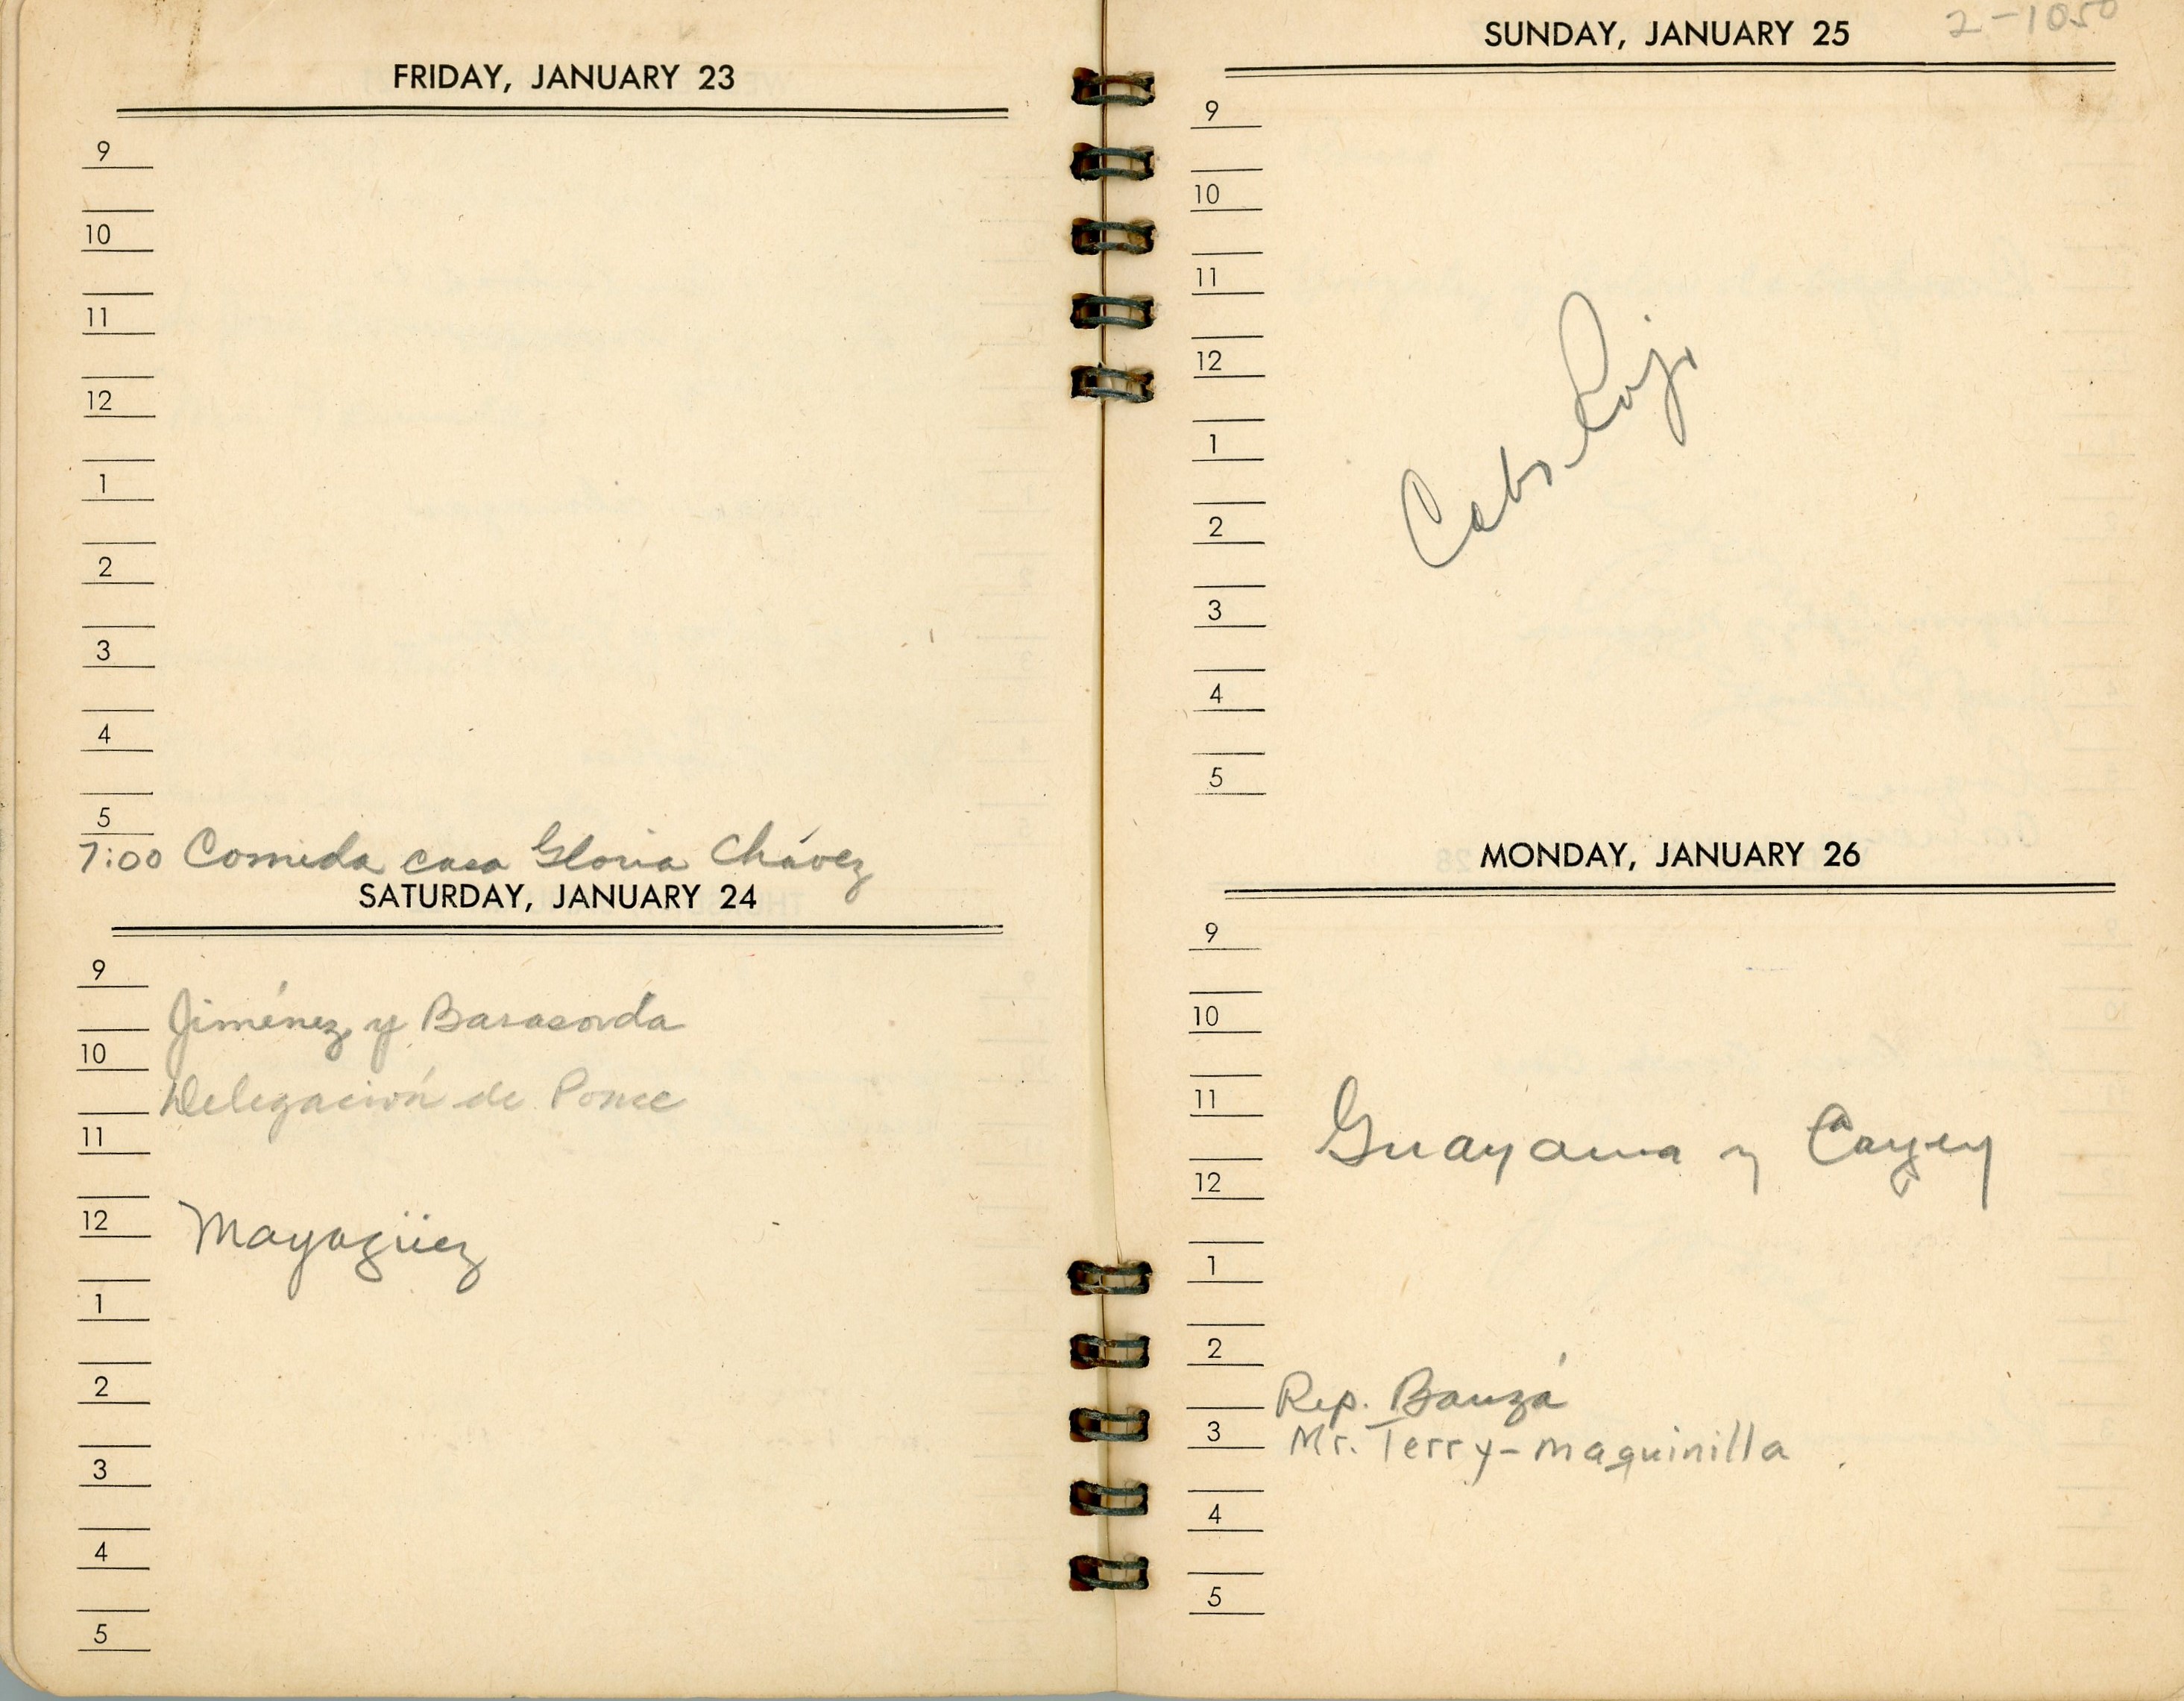 FRIDAY, JANUARY 23
9
10
11
12
1
2
3
4
5
7:00 Comida casa Gloria Chávez
SATURDAY, JANUARY 24
9
Jiménez y Barasorda
10
Delegación de Ponce
11
12 Mayagüez
1
2
3
4
5
2-1050
SUNDAY, JANUARY 25
9
10
11
12
Cabo Rojo
1
2
3
4
5
MONDAY, JANUARY 26
9
10
11
Guayama y Cayey
12
1
2
Rep. Bauzá
3 Mr. Terry-maquinilla
4
5